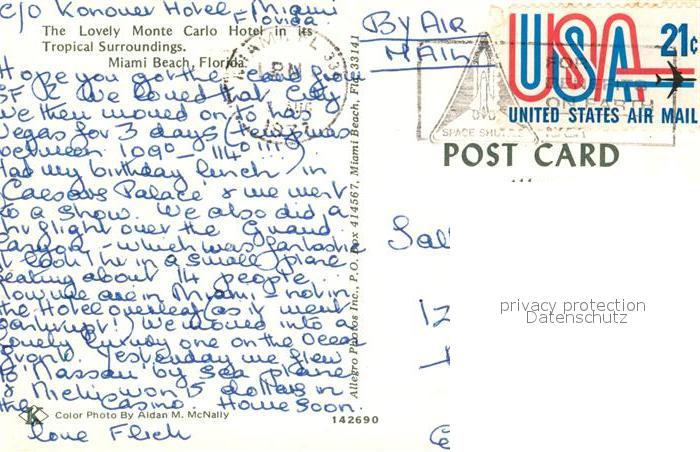 c/o Konover Hotel - Miami
Florida.
The Lovely Monte Carlo Hotel in its
Tropical Surroundings.
Miami Beach, Florida.
Hope you got the card from
SF 2. We loved that City
We then moved on to Las
Vegas for 3 days (temp was
between 109° - 114°!!)
Had my birthday lunch in
Caesars Palace & we went
to a show. We also did a
flight over the Grand
Canyon - which was fantastic
it took 1 hr in a small plane
seating about 14 people.
Now we are in Miami - not in
the Hotel overleaf (as it went
bankrupt!) We moved into a
lovely luxury one on the Ocean
front. Yesterday we flew
to Nassau by sea plane
& Nicki won 5 dollars in
the Casino. Home soon.
K Color Photo By Aidan M. McNally
142690
love Flick
Allegro Photos Inc., P.O. Box 414567, Miami Beach, Fla. 33141
By Air
Mail
MIAMI, FL 33
PM
AUG
SPACE SHUTTLE
FOR
BENEFITS
ON EARTH
USA 21c
UNITED STATES AIR MAIL
POST CARD
Sal
12
privacy protection
Datenschutz